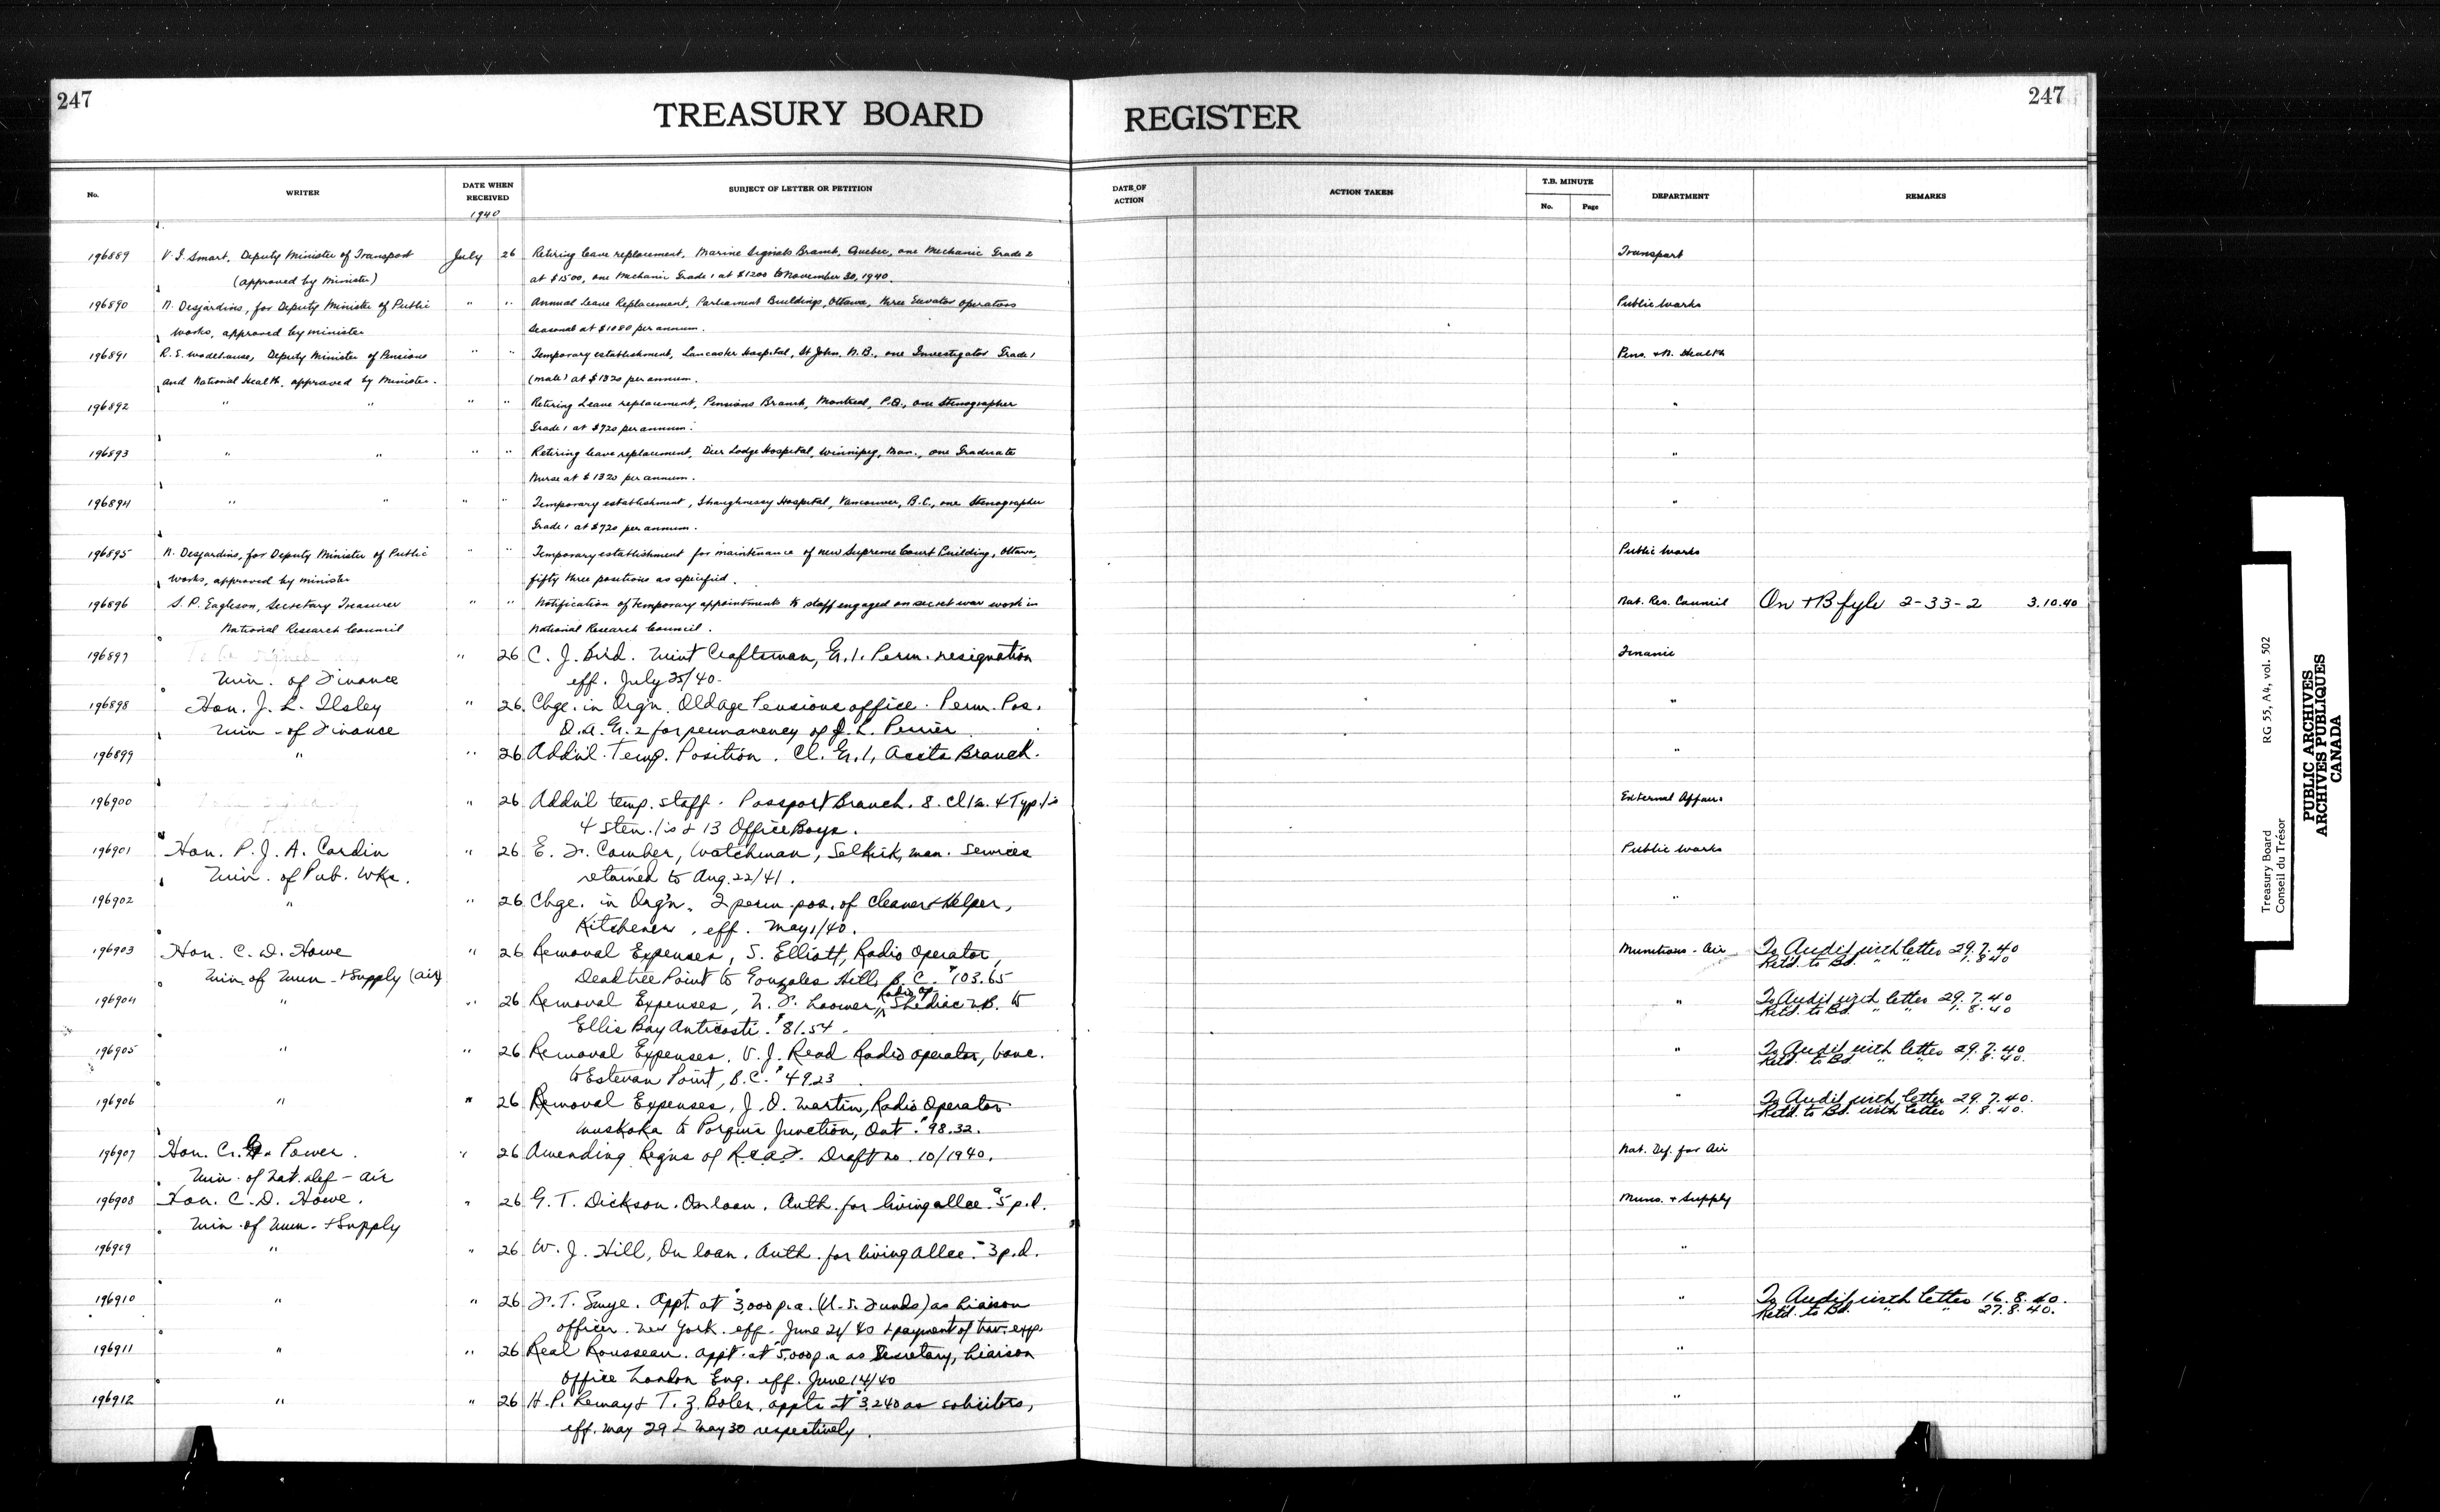 247
TREASURY BOARD REGISTER
247
No. WRITER DATE WHEN RECEIVED SUBJECT OF LETTER OR PETITION DATE OF ACTION ACTION TAKEN T.B. MINUTE No. Page DEPARTMENT REMARKS
1940
196889 V. I. Smart, Deputy Minister of Transport July 26 Retiring leave replacement, Marine Signals Branch, Quebec, one Mechanic Grade 2 Transport
(approved by Minister) at $1500, one Mechanic Grade 1 at $1200 to November 30, 1940.
196890 N. Desjardins, for Deputy Minister of Public " " Annual Leave Replacement, Parliament Buildings, Ottawa, three Elevator Operators Public Works
Works, approved by minister Seasonal at $1080 per annum.
196891 R. E. Wodehouse, Deputy Minister of Pensions " " Temporary establishment, Lancaster Hospital, St John, N.B., one Investigator Grade 1 Pens. + N. Health
and National Health, approved by Minister. (male) at $1320 per annum.
196892 " " " " Retiring Leave replacement, Pensions Branch, Montreal, P.Q., one Stenographer "
Grade 1 at $720 per annum.
196893 " " " " Retiring leave replacement, Deer Lodge Hospital, Winnipeg, Man., one Graduate "
Nurse at $1320 per annum.
196894 " " " " Temporary establishment, Shaughnessy Hospital, Vancouver, B.C., one Stenographer "
Grade 1 at $720 per annum.
196895 N. Desjardins, for Deputy Minister of Public " " Temporary establishment for maintenance of new Supreme Court Building, Ottawa, Public Works
Works, approved by minister fifty three positions as specified.
196896 S. P. Eagleson, Secretary Treasurer " " Notification of temporary appointments to staff engaged on secret war work in Nat. Res. Council On TB fyle 2-33-2 3.10.40
National Research Council National Research Council.
196897 " 26 C. J. Bird. Mint Craftsman, Gr. 1. Perm. resignation Finance
Min. of Finance eff. July 25/40.
196898 Hon. J. L. Ilsley " 26 Chge. in Orgn. Old Age Pensions office. Perm. Pos. "
Min. of Finance O.A. Gr. 2 for permanency of J. L. Perrier
196899 " " 26 Addnl. Temp. Position. Cl. Gr. 1, Accts Branch. "
196900 " 26 Addnl temp. staff. Passport Branch. 8. Cl 1s. 4 Typ. 1s External Affairs
4 Sten. 1s & 13 Office Boys.
196901 Hon. P. J. A. Cardin " 26 E. F. Comber, Watchman, Selkirk, Man. Services Public Works
Min. of Pub. Wks. retained to Aug. 22/41.
196902 " " 26 Chge. in Orgn. 2 perm pos. of Cleaner & Helper, "
Kitchener, eff. May 1/40.
196903 Hon. C. D. Howe " 26 Removal Expenses, S. Elliott, Radio Operator, Munitions - Air To Audit with letter 29.7.40
Min. of Mun. + Supply (Air) Deadtree Point to Gonzales Hill, B.C. $103.65 Retd. to Bd. " " 1.8.40
196904 " " 26 Removal Expenses, N. F. Loomer, Radio Op. Shediac N.B. to " To Audit with letter 29.7.40
Ellis Bay Anticosti. $81.54. Retd. to Bd. " " 1.8.40
196905 " " 26 Removal Expenses. V. J. Read Radio operator, Vanc. " To Audit with letter 29.7.40
to Estevan Point, B.C. $49.23 Retd. to Bd. " " 1.8.40.
196906 " " 26 Removal Expenses, J. O. Martin, Radio Operator " To Audit with letter 29.7.40.
Muskoka to Porquis Junction, Ont. $98.32. Retd. to Bd. with letter 1.8.40.
196907 Hon. C. G. Power. " 26 Amending Regns of R.C.A.F. Draft No. 10/1940. Nat. Def. for Air
Min. of Nat. Def - Air
196908 Hon. C. D. Howe. " 26 G. T. Dickson. On loan. Auth. for living allce. $5 p.d. Muns. + Supply
Min. of Mun. + Supply
196909 " " 26 W. J. Hill, On loan. Auth. for living allce. $3 p.d. "
196910 " " 26 F. T. Smye. Appt. at $3,000 p.a. (U.S. Funds) as Liaison " To Audit with letter 16.8.40.
officer. New York. eff. June 21/40 & payment of trav. exp. Retd. to Bd. " " 27.8.40.
196911 " " 26 Real Rousseau. appt. at $5,000 p.a as Secretary, Liaison "
Office London Eng. eff. June 14/40
196912 " " 26 H. P. Lemay & T. Z. Boles, appts at $3,240 as solicitors, "
eff. May 29 & May 30 respectively.
Treasury Board RG 55, A4, vol. 502
Conseil du Trésor
PUBLIC ARCHIVES
ARCHIVES PUBLIQUES
CANADA